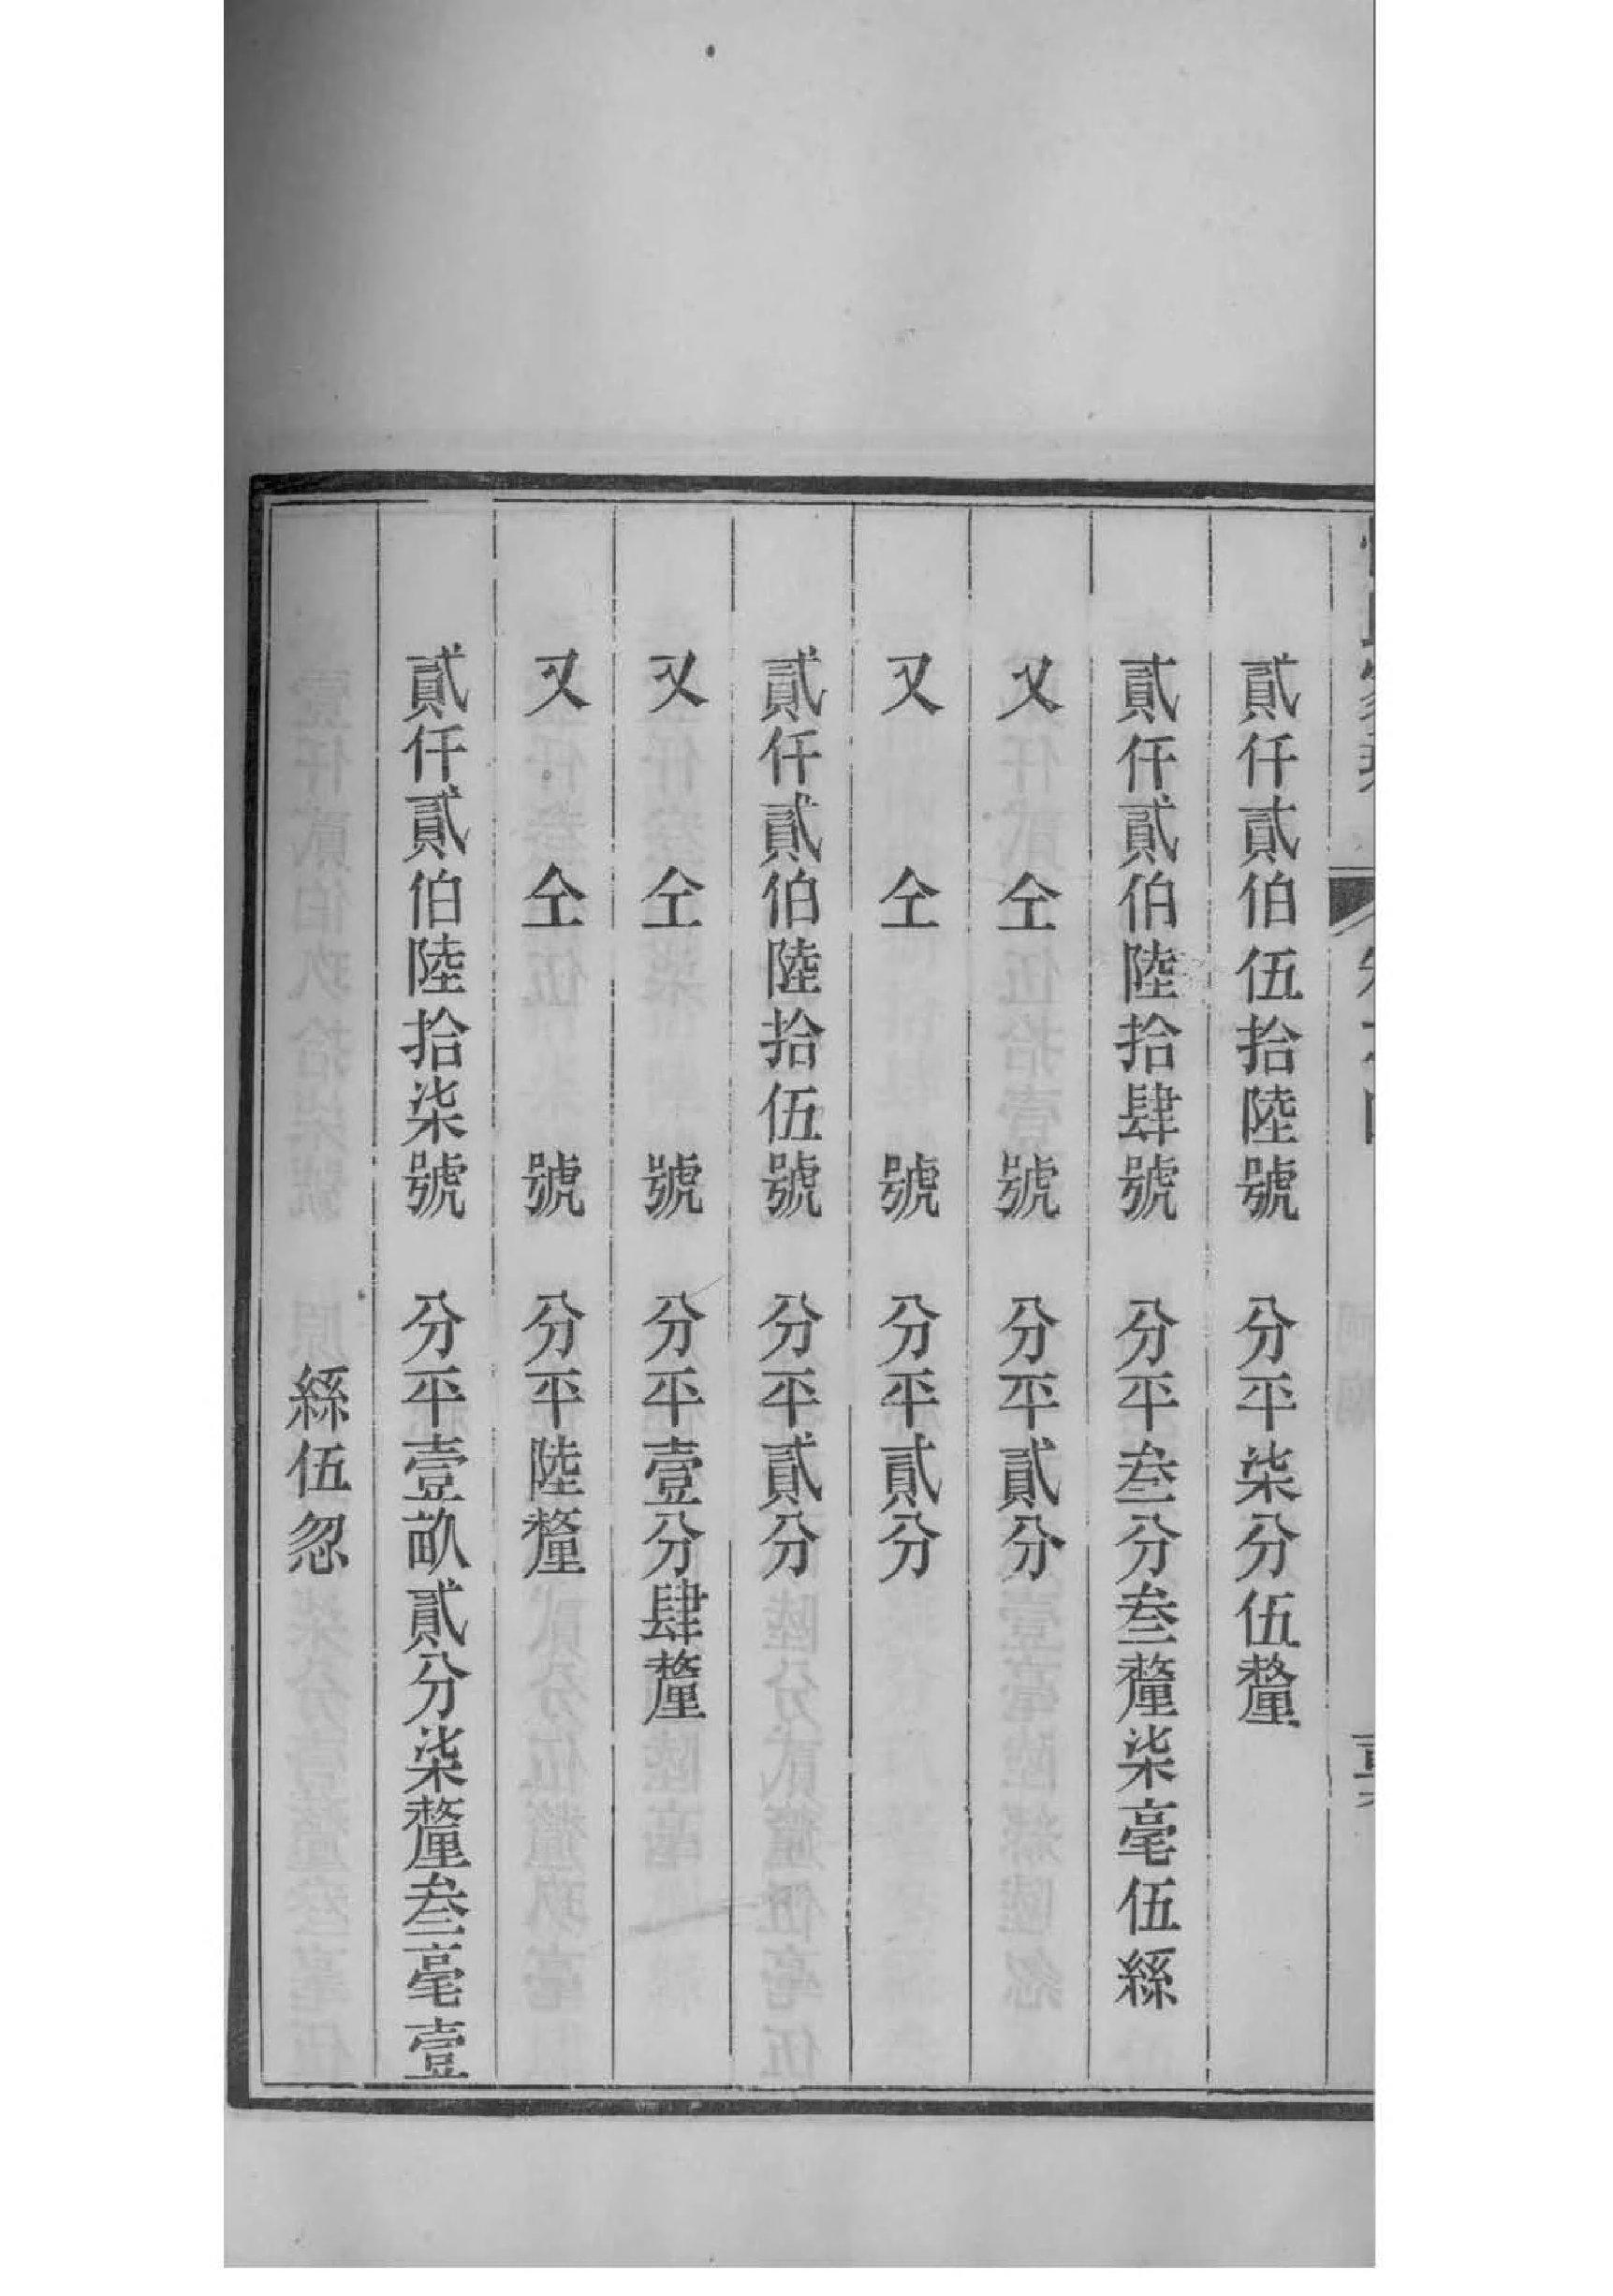 貳仟貳伯伍拾陸號　分平柒分伍釐
貳仟貳伯陸拾肆號　分平叁分叁釐柒毫伍絲
又仝號　分平貳分
又仝號　分平貳分
貳仟貳伯陸拾伍號　分平貳分
又仝號　分平壹分肆釐
又仝號　分平陸釐
貳仟貳伯陸拾柒號　分平壹畝貳分柒釐叁毫壹
絲伍忽